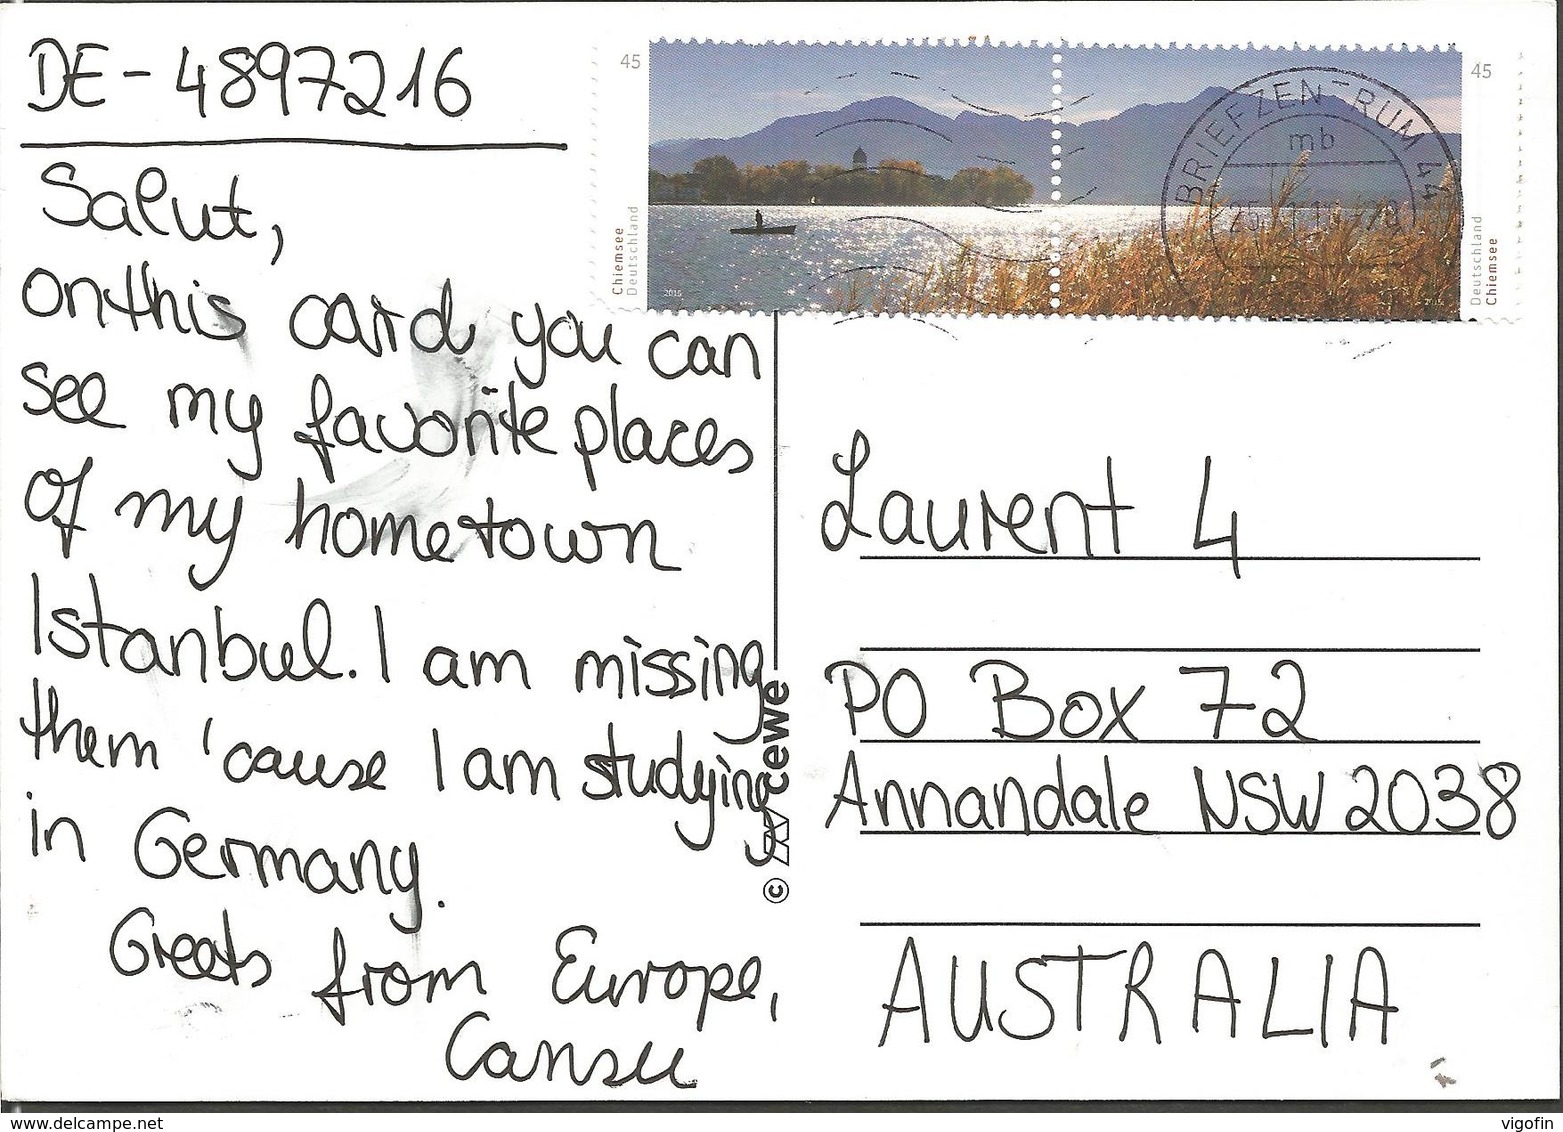 DE-4897216
Salut,
on this card you can
see my favorite places
of my hometown
Istanbul. I am missing
them 'cause I am studying
in Germany.
Greets from Europe,
Cansu
45
45
Chiemsee
Deutschland
2015
Deutschland
Chiemsee
2015
BRIEFZEN-RUM 44
mb
© cewe
Laurent 4
PO Box 72
Annandale NSW 2038
AUSTRALIA
www.delcampe.net
vigofin